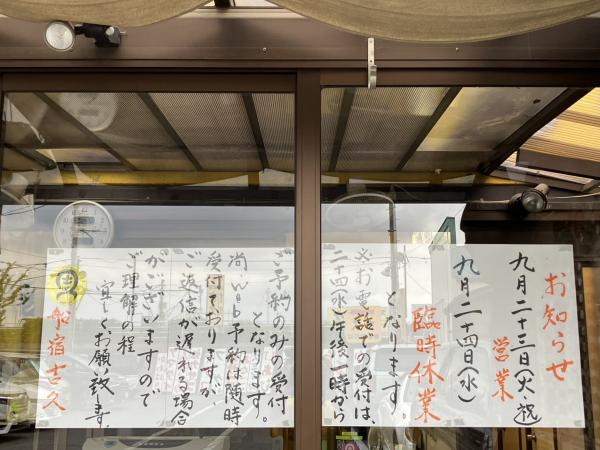 お知らせ
九月二十三日(火・祝)
営業
九月二十四日(水)
臨時休業
となります。
※お電話での受付は、
二十四(水)午後一時から
ご予約のみの受付
となります。
尚web予約は随時
受付ておりますが
ご返信が遅れる場合
がございますので
ご理解の程
宜しくお願い致します
船宿吉久